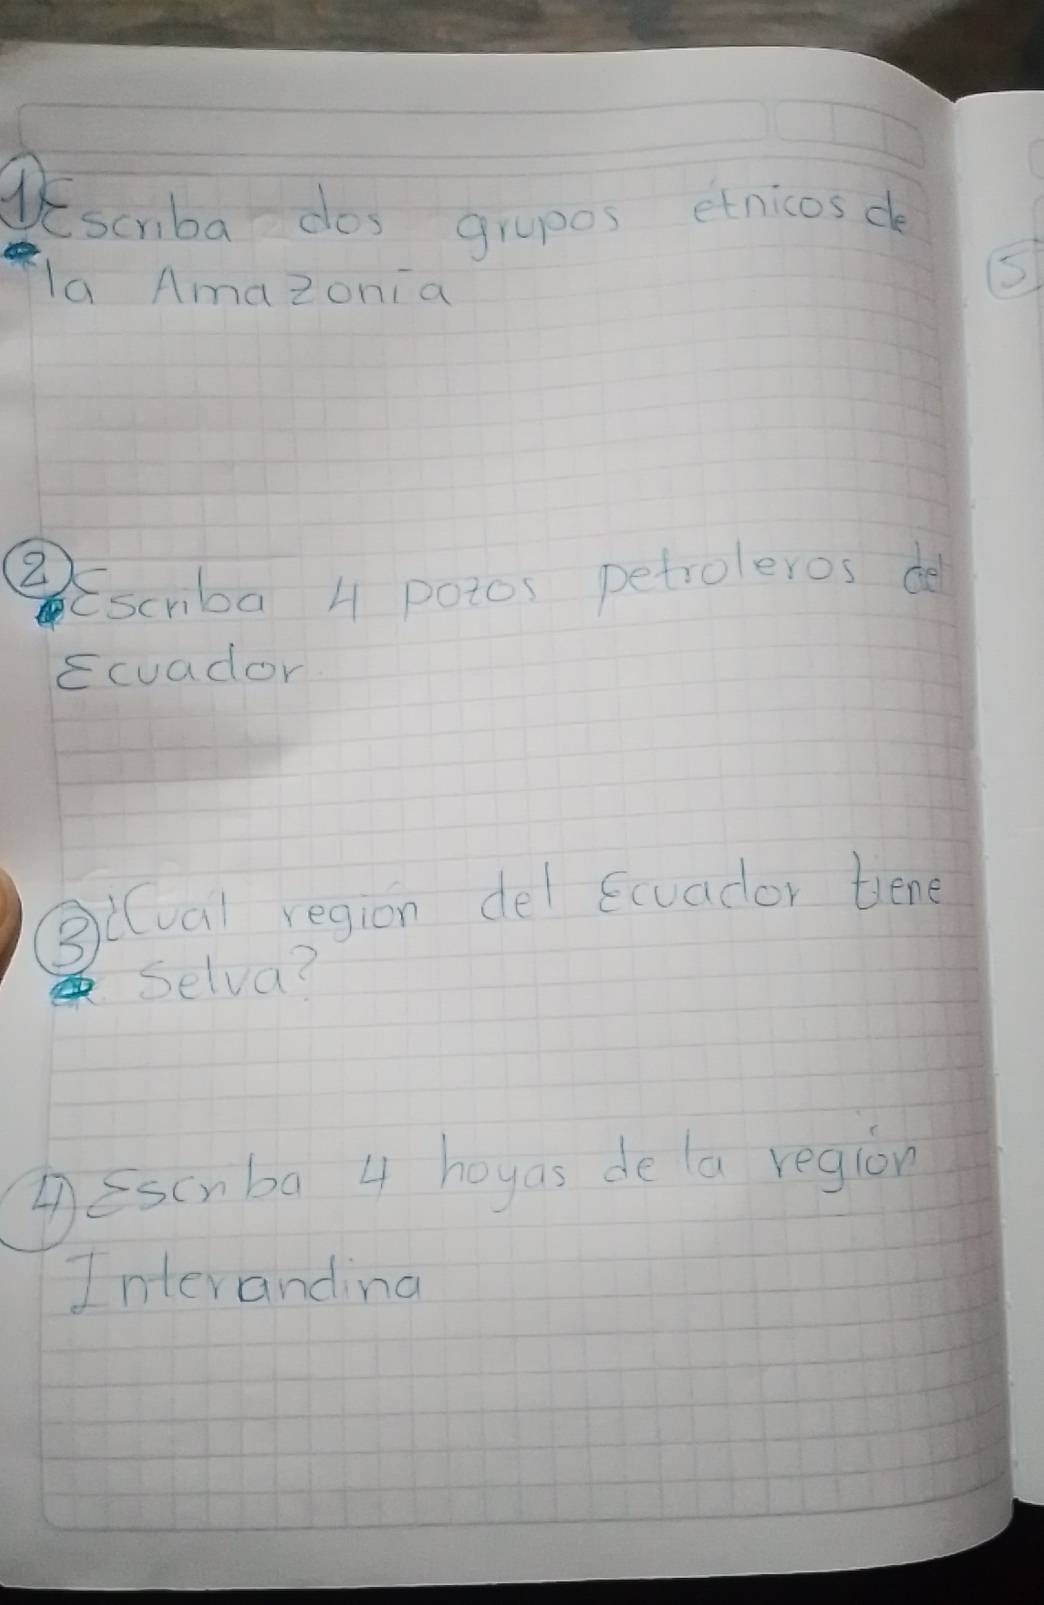 ① Escriba dos grupos étnicos de
la Amazonía
② Escriba 4 pozos petroleros del
Ecuador
③ ¿Cual región del Ecuador tiene
Selva?
④ Escriba 4 hoyas de la región
Interandina
⑤